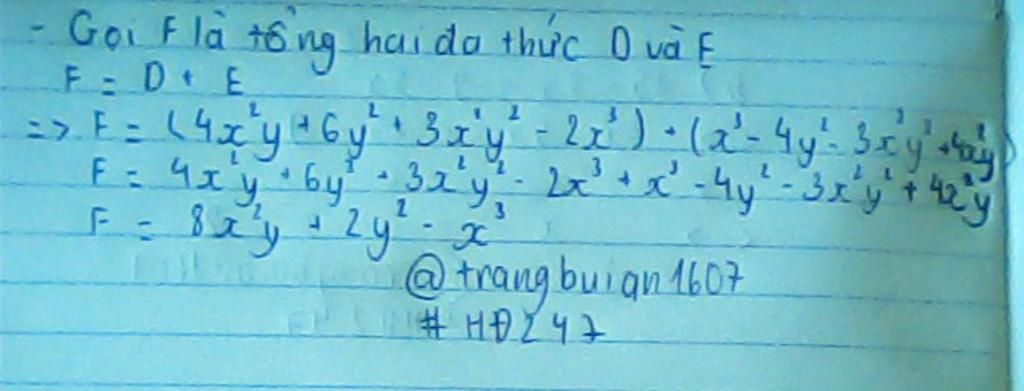 - Gọi F là tổng hai đa thức D và E
F = D + E
=> F = (4x²y + 6y² + 3x²y² - 2x³) + (x³ - 4y² - 3x²y² + 4x²y)
F = 4x²y + 6y² + 3x²y² - 2x³ + x³ - 4y² - 3x²y² + 4x²y
F = 8x²y + 2y² - x³
@trangbuian1607
#HĐ247